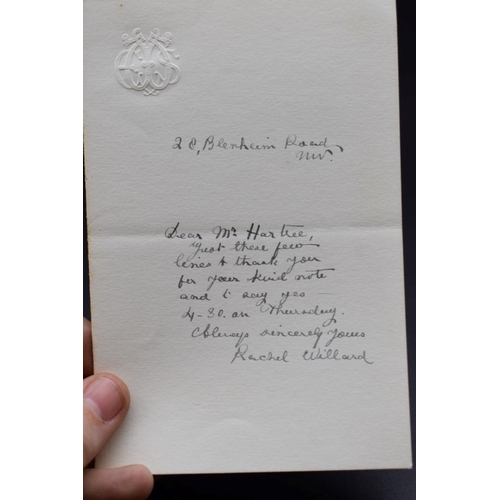 2 C, Blenheim Road,
NW.
Dear Mr Hartree,
Just these few
lines to thank you
for your kind note
and to say yes
4-30. on Thursday.
Always sincerely yours
Rachel Willard